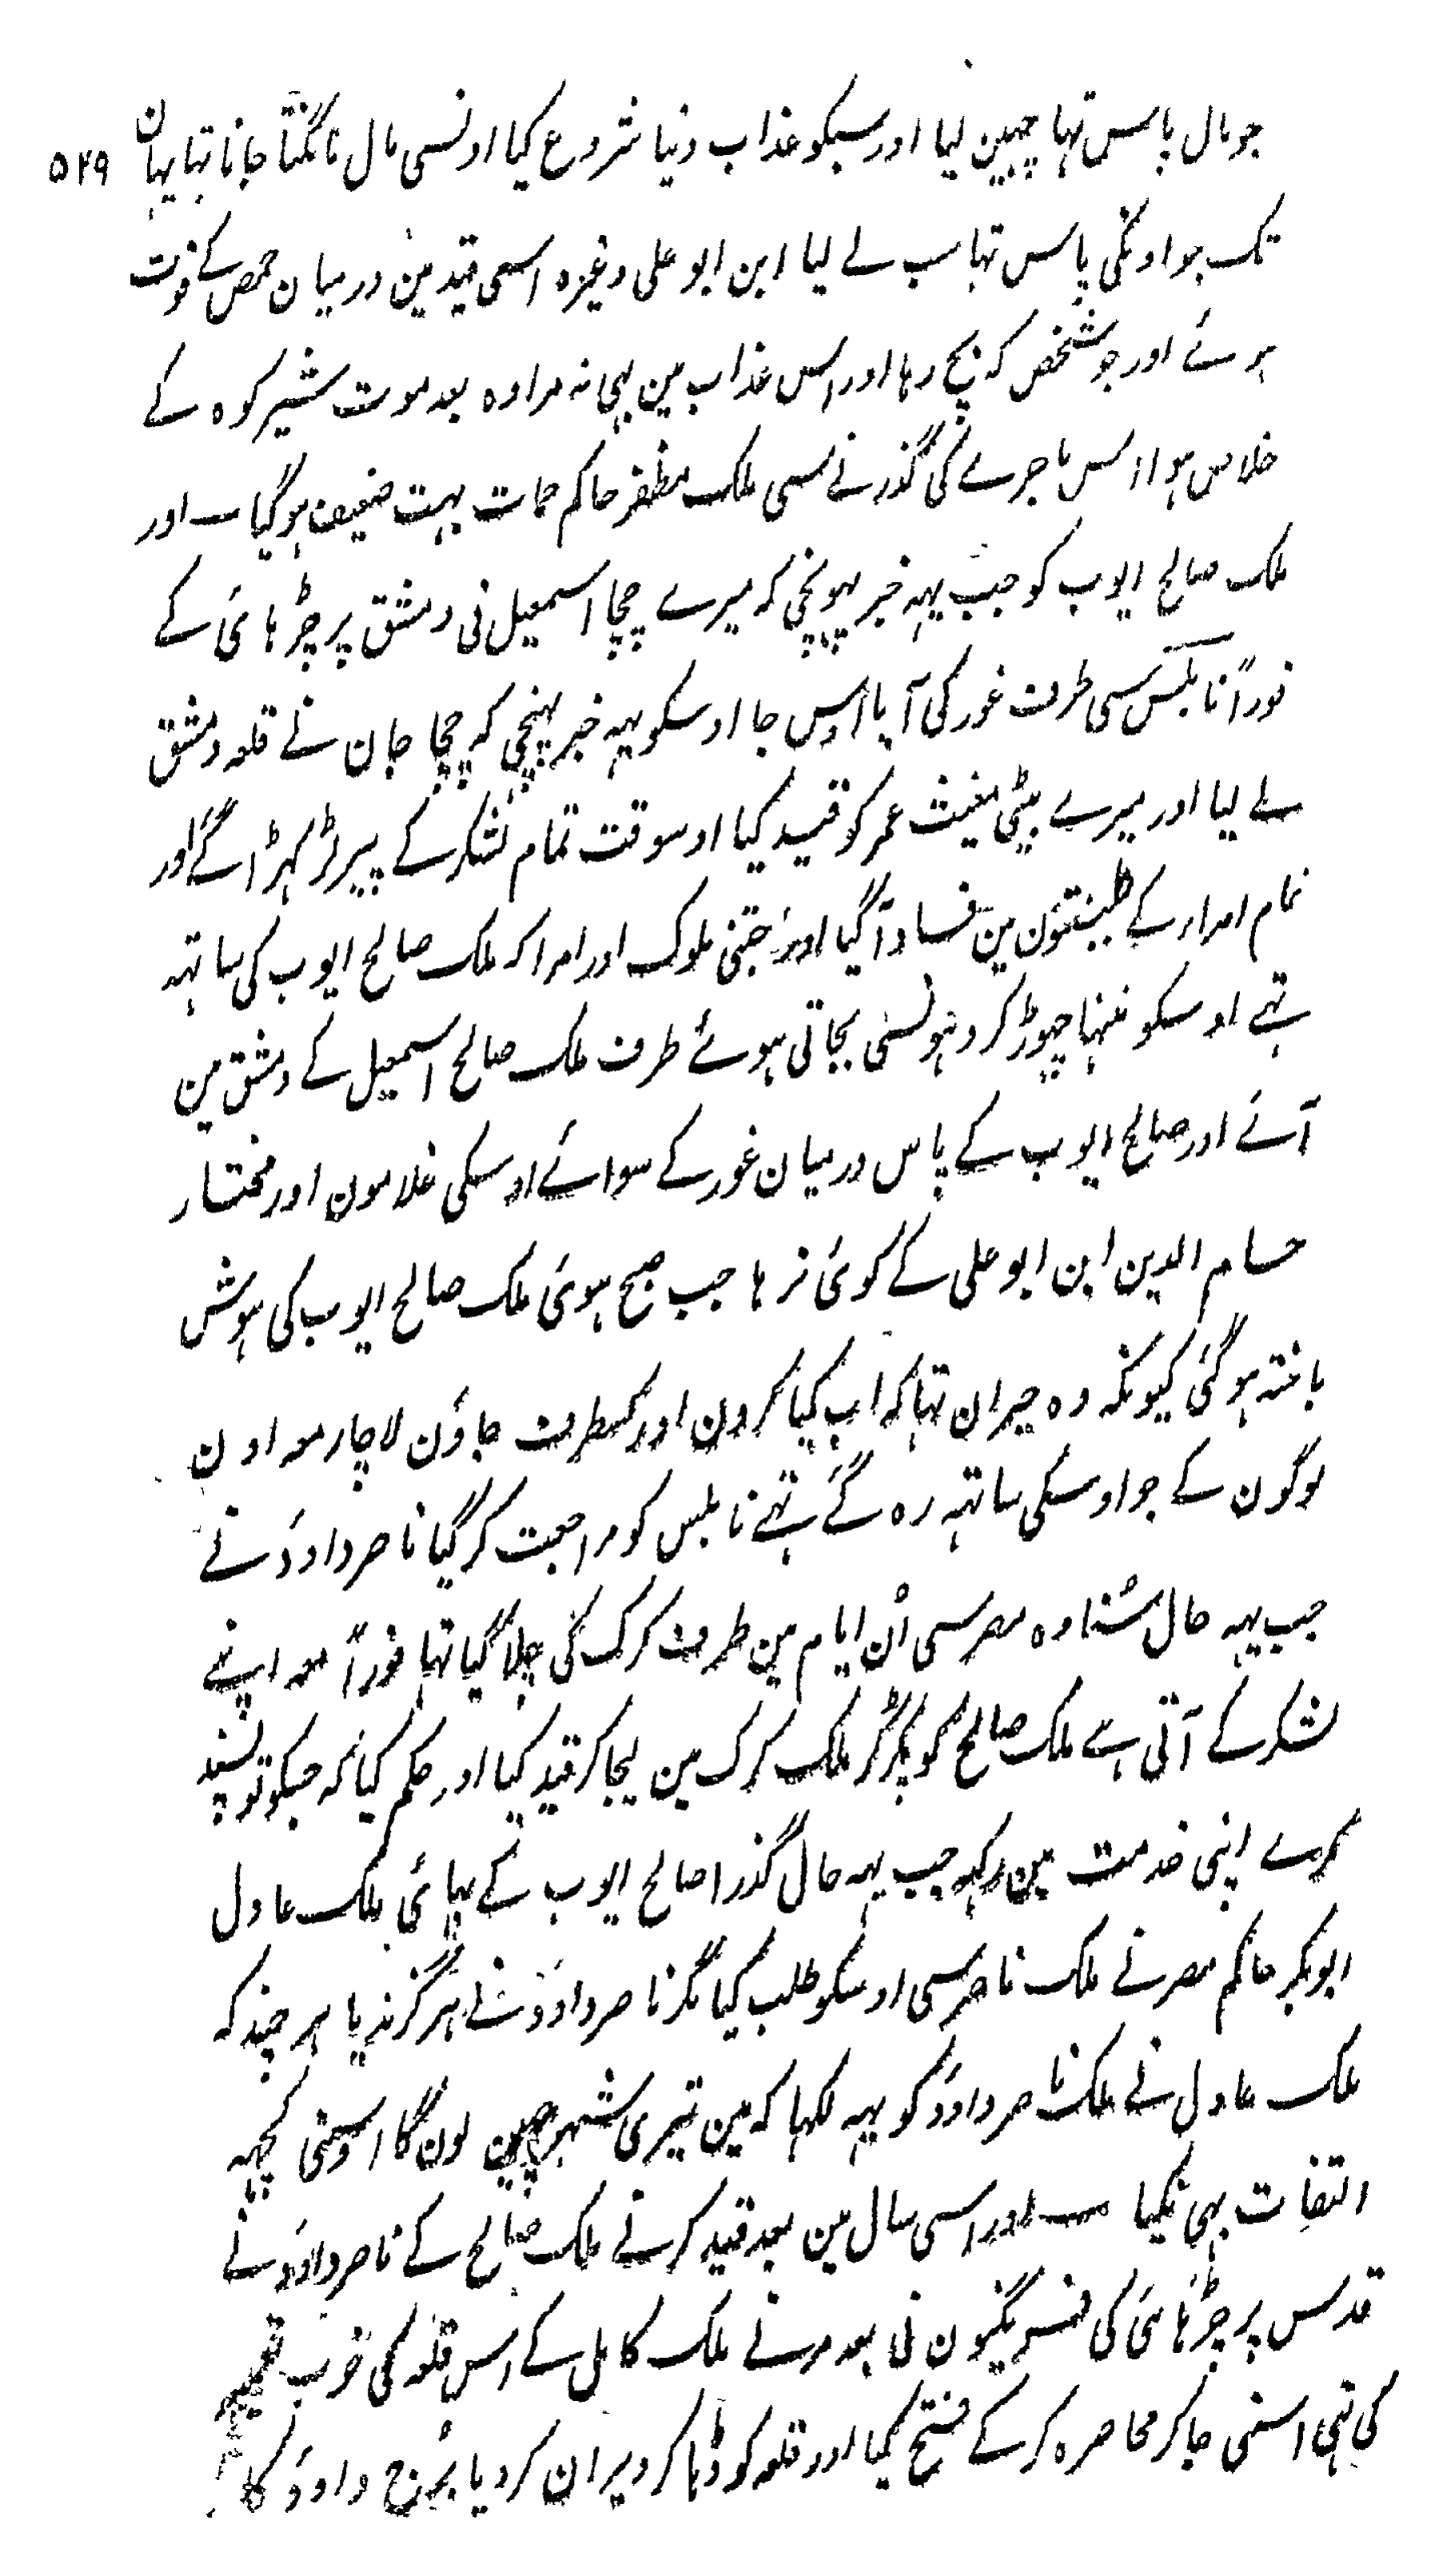 جو مال پاس تہا چہین لیا اور سبکو عذاب دنیا شروع کیا اونسی مال مانگتا جاتا تہا یہان ۵۲۹
تک جو اونکی پاس تہا سب لے لیا ابن ابو علی وغیرہ اسی قید مین درمیان حمص کے فوت
ہوئے اور جو شخص کہ بچ رہا اور اس عذاب مین بہی نہ مرا وہ بعد موت شیر کوہ کے
خلاص ہوا اس ماجرے کی گذرنے سی ملک مظفر حاکم حمات بہت ضعیف ہو گیا ۔ اور
ملک صالح ایوب کو جب یہہ خبر پہونچی کہ میرے چچا اسمعیل نی دمشق پر چڑہائی کے
فوراً نابلس سی طرف غور کی آیا اوس جا اوسکو یہہ خبر پہنچی کہ چچا جان نے قلعہ دمشق
لے لیا اور میرے بیٹی مغیث عمر کو قید کیا اوسوقت تمام لشکر کے پیر لڑکہڑا گے اور
تمام امراء کے طینتون مین فساد آگیا اور جتنی ملوک اور امرا کہ ملک صالح ایوب کی ساتہہ
تہے اوسکو تنہا چہوڑ کر دہونسی بجاتی ہوئے طرف ملک صالح اسمعیل کے دمشق مین
آئے اور صالح ایوب کے پاس درمیان غور کے سوائے اوسکی غلامون اور مختار
حسام الدین ابن ابو علی کے کوئی نرہا جب صبح ہوئی ملک صالح ایوب کی ہوش
باختہ ہو گئی کیونکہ وہ حیران تہا کہ اب کیا کرون اور کسطرف جاؤن لاچار معہ اون
لوگون کے جو اوسکی ساتہہ رہ گے تہے نابلس کو مراجعت کر گیا ناصر داود نے
جب یہہ حال سُنا وہ مصر سی اُن ایام مین طرف کرک کی چلا گیا تہا فوراً معہ اپنے
لشکر کے آتی ہے ملک صالح کو پکڑ کر ملک کرک مین لیجا کر قید کیا اور حکم کیا کہ جسکو تو پسند
کرے اپنی خدمت مین رکہہ جب یہہ حال گذرا صالح ایوب کے بہائی ملک عادل
ابوبکر حاکم مصر نے ملک ناصر سی اوسکو طلب کیا مگر ناصر داود نے ہرگز ندیا ہر چند کہ
ملک عادل نے ملک ناصر داود کو یہہ لکہا کہ مین تیری شہر چہین لون گا اوسنی کچہہ
التفات بہی نکیا ۔ اور اسی سال مین بعد قید کرنے ملک صالح کے ناصر داود نے
قدس پر چڑہائی کی فرنگیون نی بعد مرنے ملک کامل کے اس قلعہ کی خوب تعمیر
کی تہی اسنی جا کر محاصرہ کر کے فتح کیا اور قلعہ کو ڈہا کر ویران کر دیا برج داود کا